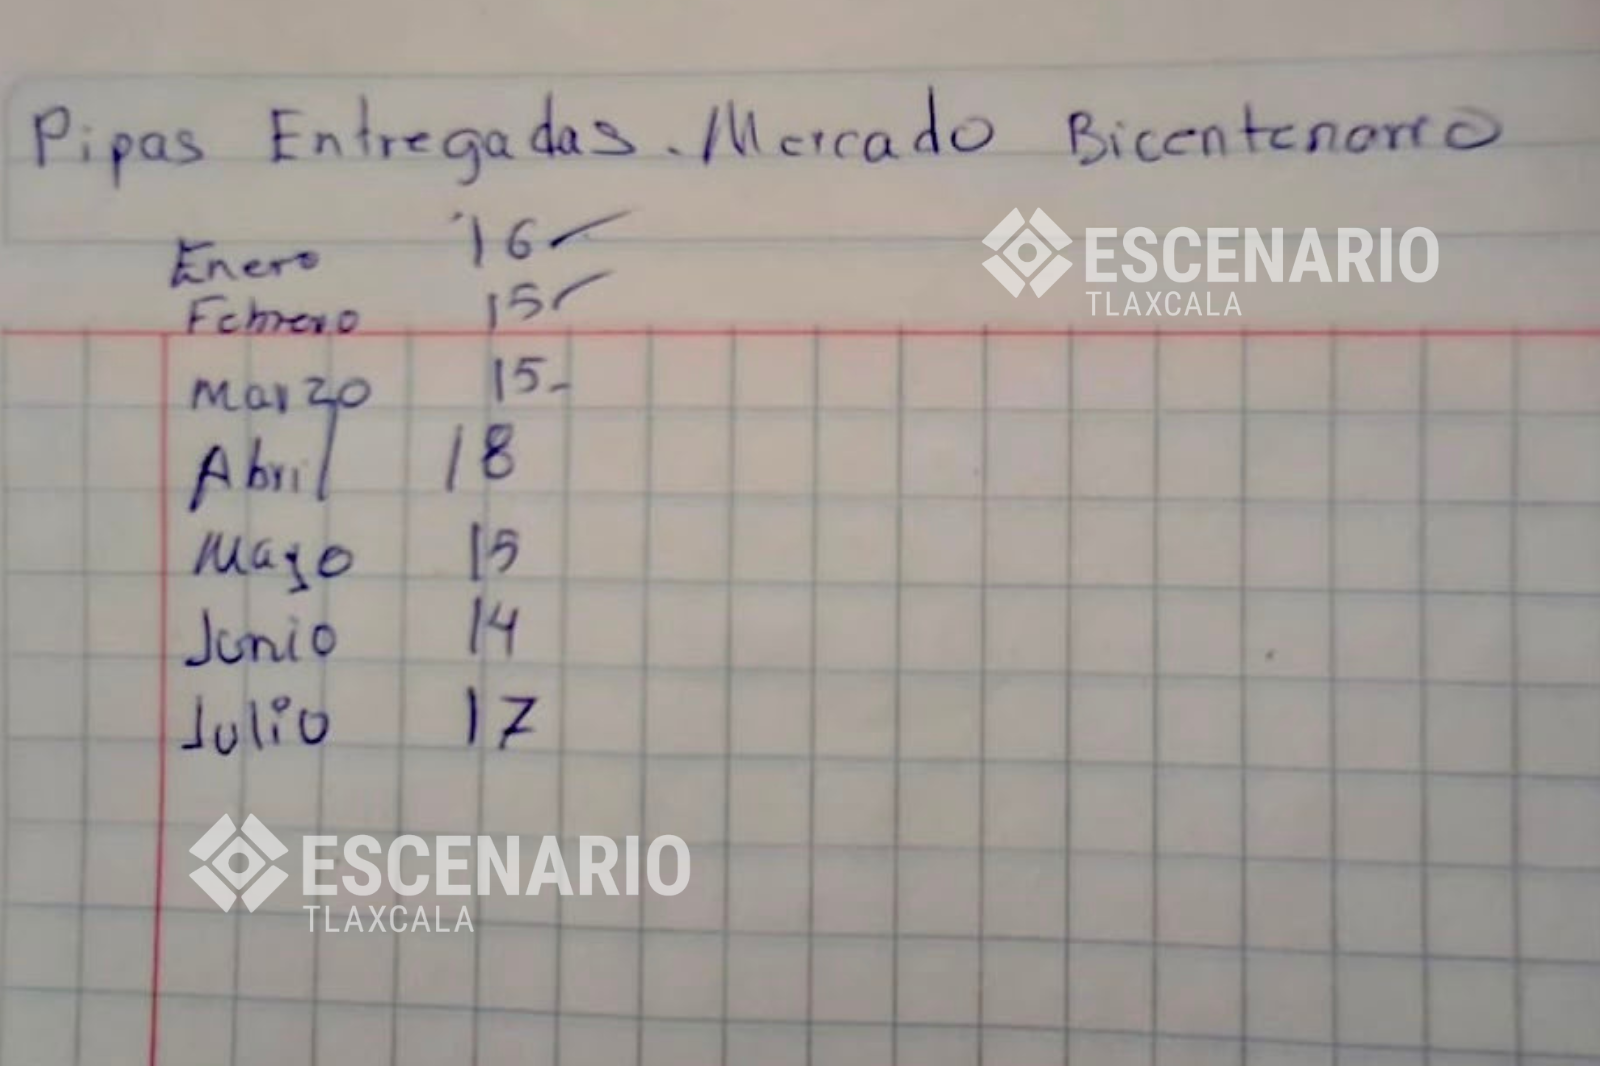 Pipas Entregadas. Mercado Bicentenario
Enero 16
Febrero 15
Marzo 15-
Abril 18
Mayo 15
Junio 14
Julio 17
ESCENARIO
TLAXCALA
ESCENARIO
TLAXCALA